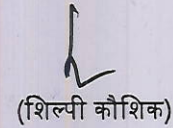 (शिल्पी कौशिक)